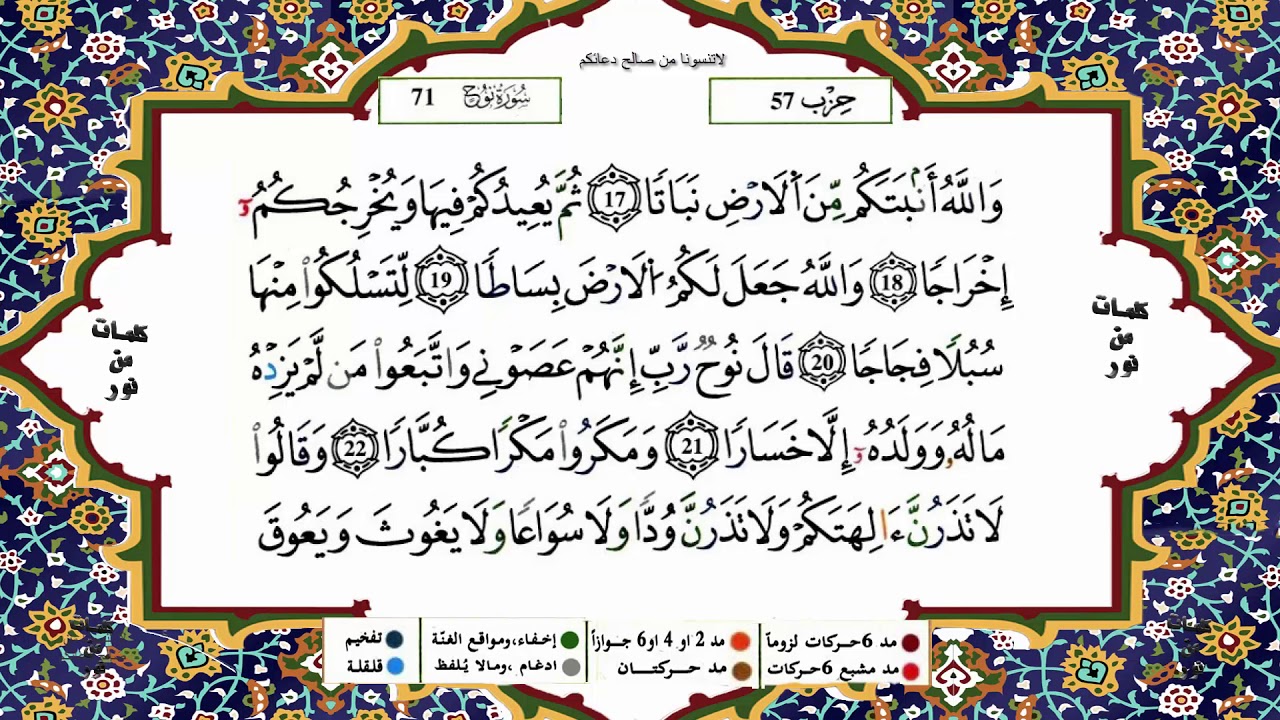 لاتنسونا من صالح دعائكم
حِزْب 57
سُورَة نُوح 71
وَاللَّهُ أَنۢبَتَكُم مِّنَ اَلَارْضِ نَبَاتًا 17 ثُمَّ يُعِيدُكُمْ فِيهَا وَيُخْرِجُكُمُۥٓ
إِخْرَاجًا 18 وَاللَّهُ جَعَلَ لَكُمُ اُلَارْضَ بِسَاطًا 19 لِّتَسْلُكُوا۟ مِنْهَا
سُبُلًا فِجَاجًا 20 قَالَ نُوحٌ رَّبِّ إِنَّهُمْ عَصَوْنِي وَاتَّبَعُوا۟ مَن لَّمْ يَزِدْهُ
مَالُهُۥ وَوَلَدُهُۥٓ إِلَّا خَسَارًا 21 وَمَكَرُوا۟ مَكْرًا كُبَّارًا 22 وَقَالُوا۟
لَا تَذَرُنَّ ءَالِهَتَكُمْ وَلَا تَذَرُنَّ وُدًّا وَلَا سُوَاعًا وَلَا يَغُوثَ وَيَعُوقَ
كلمات
من
نور
كلمات
من
نور
مد 6 حركات لزوماً
مد 2 او 4 او 6 جوازاً
إخفاء، ومواقع الغنّة
تفخيم
مد مشبع 6 حركات
مد حركتان
ادغام، ومالا يُلفظ
قلقلة